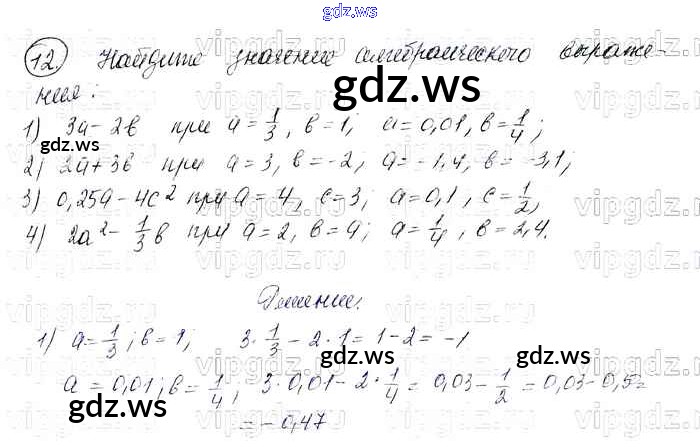 gdz.ws
gdz.ws
12 Найдите значение алгебраического выраже-
ния:
1) 3a - 2b при a = 1/3, b = 1; a = 0,01, b = 1/4;
2) 2a + 3b при a = 3, b = -2; a = -1,4, b = -3,1;
3) 0,25a - 4c² при a = 4, c = 3; a = 0,1, c = 1/2;
4) 2a² - 1/3 b при a = 2, b = 9; a = 1/4, b = 2,4.
gdz.ws
Решение.
1) a = 1/3; b = 1; 3 · 1/3 - 2 · 1 = 1 - 2 = -1
gdz.ws
a = 0,01; b = 1/4; 3 · 0,01 - 2 · 1/4 = 0,03 - 1/2 = 0,03 - 0,5 =
= -0,47
gdz.ws